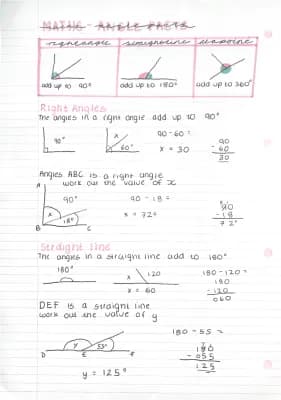 MATHS - ANGLE FACTS
right angle straight line
add up to 90° add up to 180° add up to 360°
Right Angles
The angles in a right angle add up to 90°
90°
x 60°
90 - 60 =
x = 30
90
- 60
30
Angles ABC is a right angle
work out the value of x
A
90°
x
18°
B C
90 - 18 =
x = 72°
90
- 18
72°
Straight line
The angles in a straight line add to 180°
180°
x 120
x = 60
180 - 120 =
180
- 120
060
DEF is a straight line
work out the value of y
y 55°
D E F
y = 125°
180 - 55 =
180
- 055
125